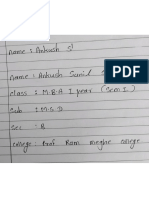 Name : Ankush S
Name : Ankush Sunil
Class : M.B.A I year (Sem I.)
Sub : M.C.D
Sec : B
College : Prof Ram meghe college